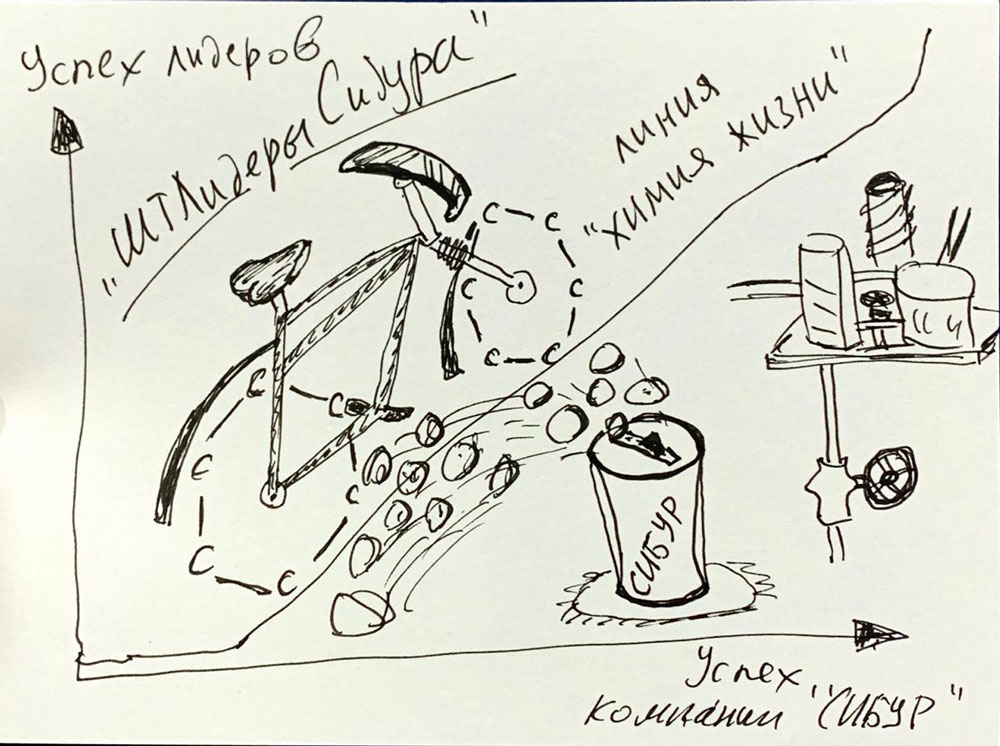 Успех лидеров
"ШТЛидеры Сибура"
линия
"химия жизни"
C C
C C
C C
C C
C C
C C
СИБУР
Успех
компании "СИБУР"